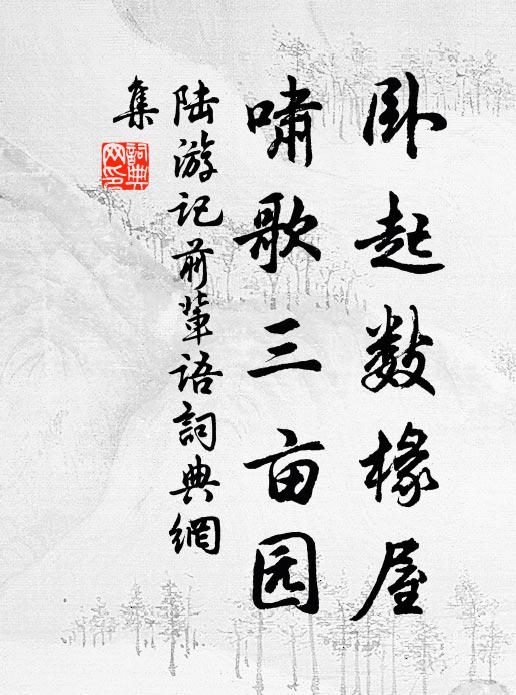 卧起数椽屋
啸歌三亩园
陆游记前辈语詞典網
集
詞典
网印